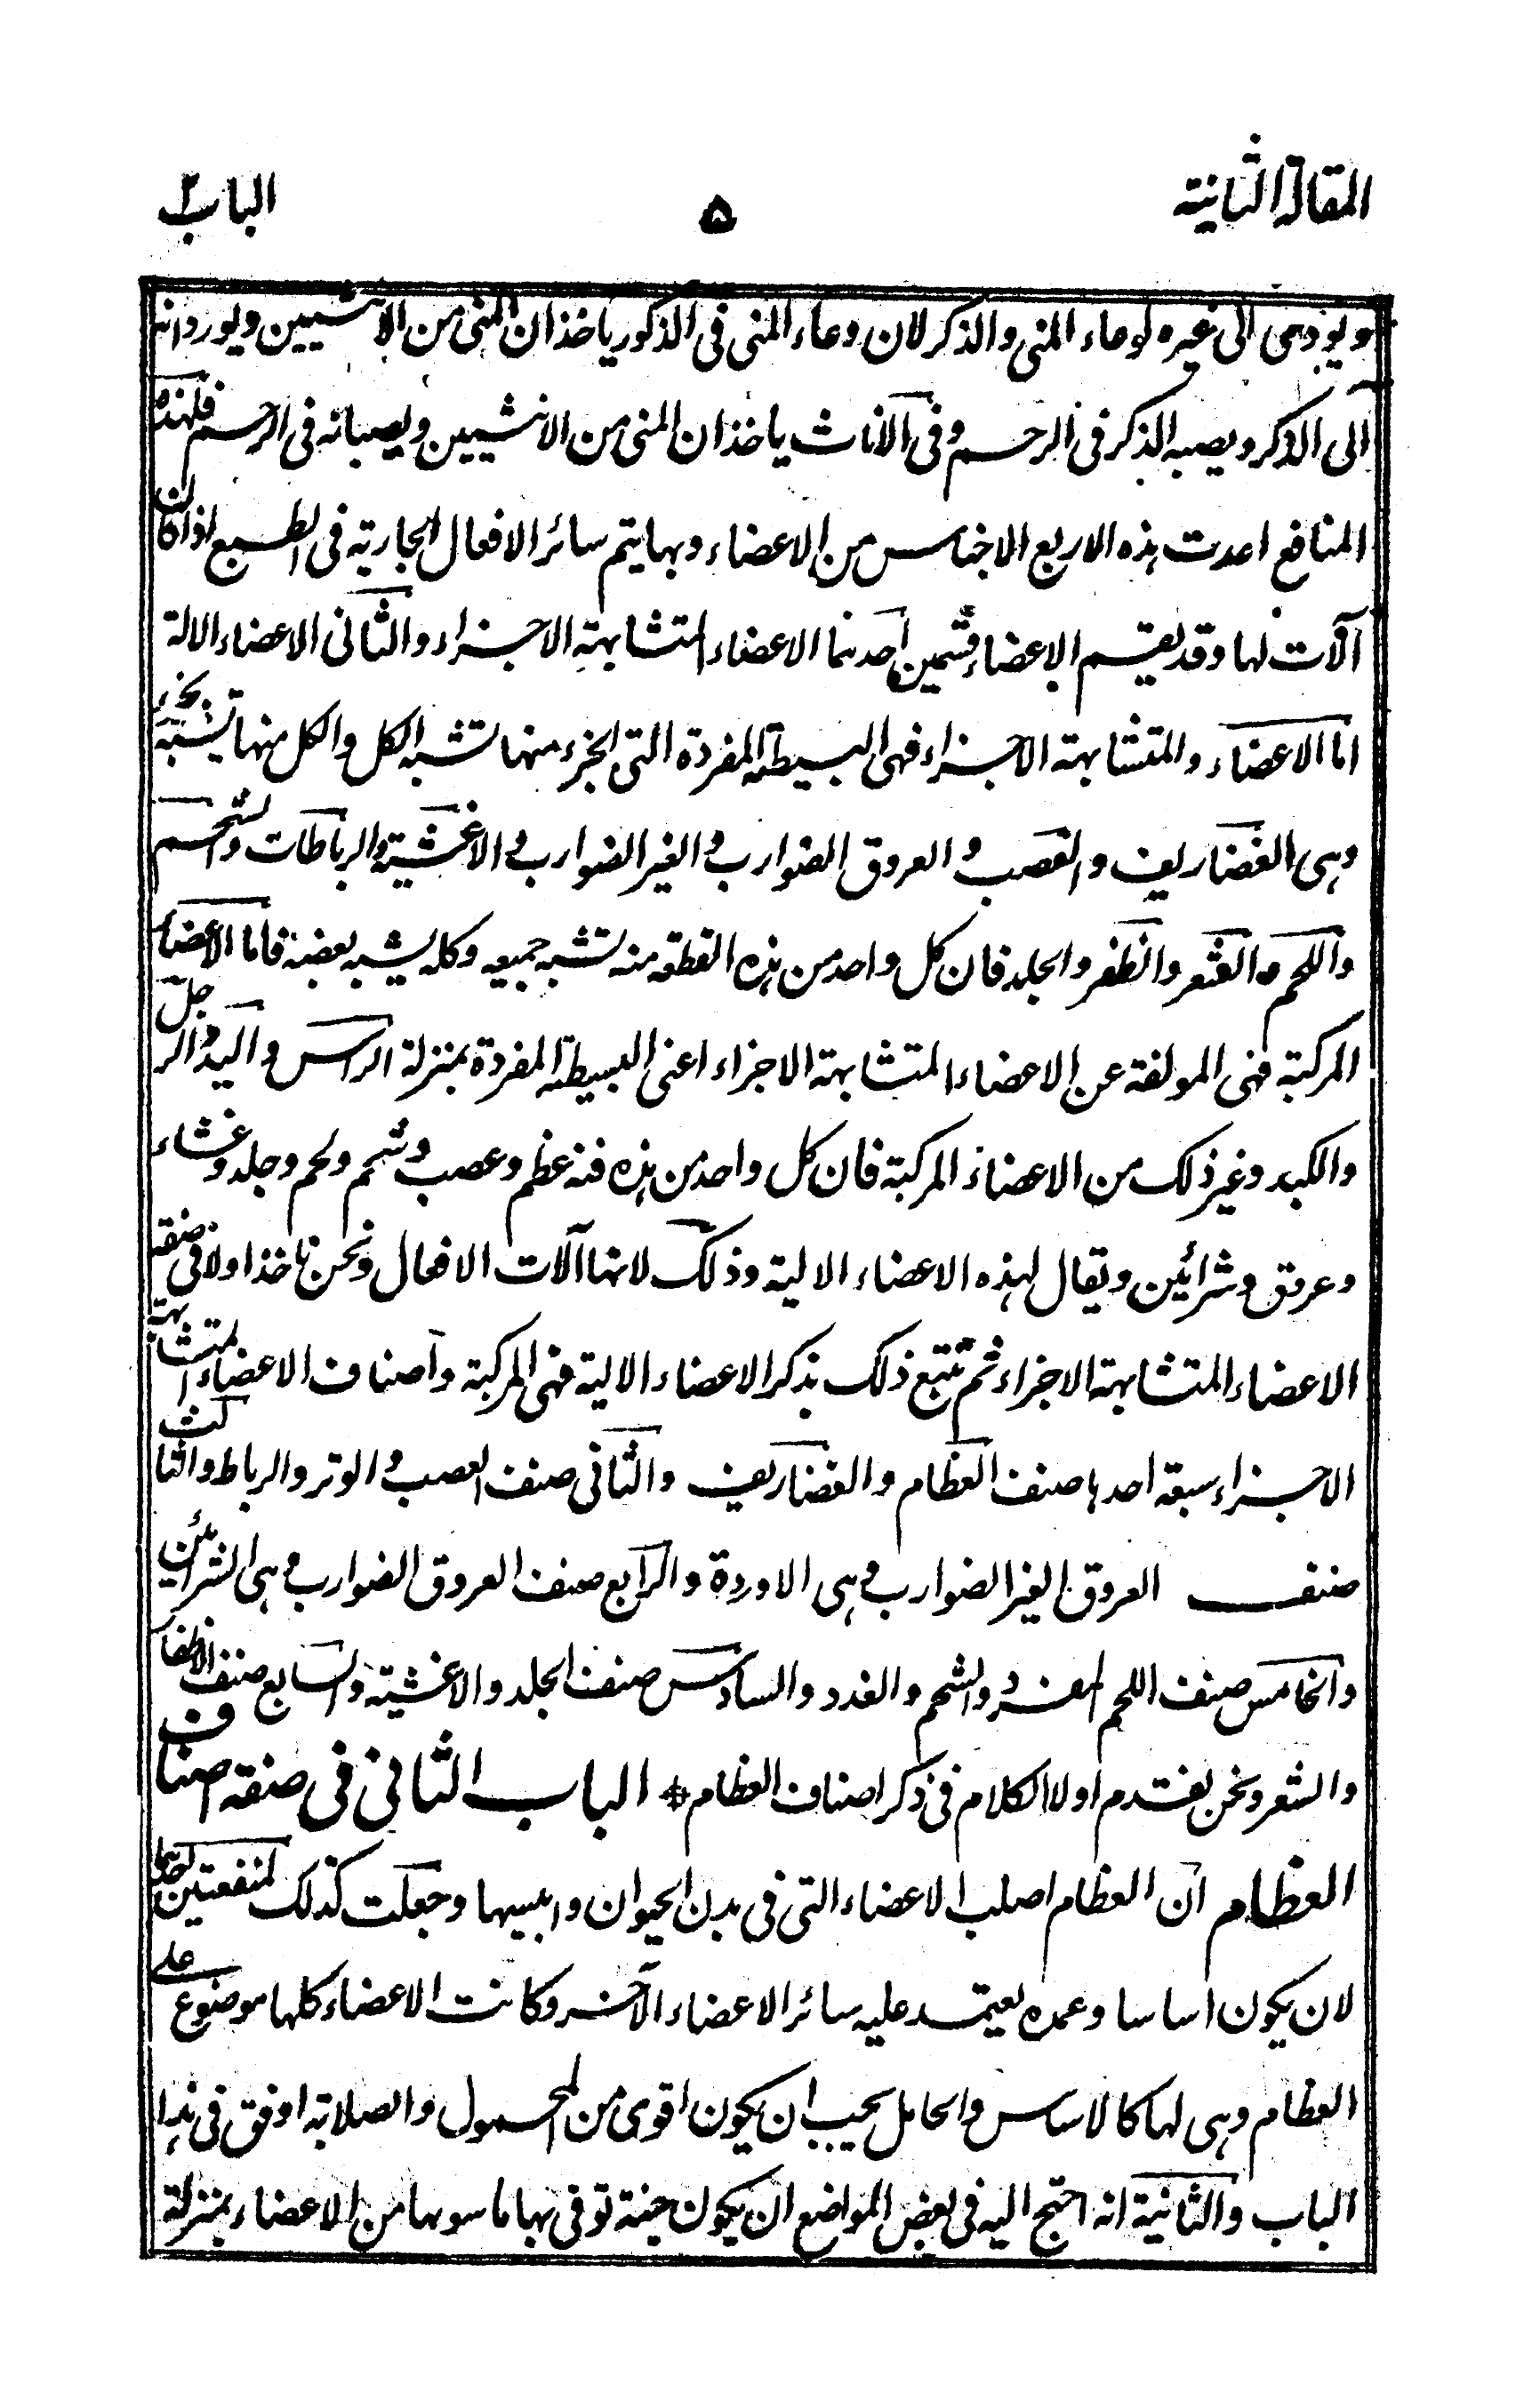 المقالة الثانية
۵
الباب ۲
ويودى الى غيره لوعاء المنى والذكر لان وعاء المنى فى الذكور ياخذان المنى من الانثيين ويوردانه
الى الذكر ويصبه الذكر فى الرحم وفى الاناث ياخذان المنى من الانثيين ويصبانه فى الرحم فلهذه
المنافع اعدت هذه الاربع الاجناس من الاعضاء وبها يتم سائر الافعال الجارية فى الطبع اذا كان
آلات لها وقد يقسم الاعضاء قسمين احدهما الاعضاء المتشابهة الاجزاء والثانى الاعضاء الالة
اما الاعضاء والمتشابهة الاجزاء فهى البسيطة المفردة التى الجزء منها تشبه الكل والكل منها تشبه بجزء
وهى الغضاريف والعصب والعروق الضوارب والغير الضوارب والاغشية والرباطات والشحم
واللحم والشعر والظفر والجلد فان كل واحد من هذه القطعة منه تشبه جميعه وكله يشبه بعضه فاما الاعضاء
المركبة فهى المولفة عن الاعضاء المتشابهة الاجزاء اعنى البسيطة المفردة بمنزلة الراس واليد والرجل
والكبد وغير ذلك من الاعضاء المركبة فان كل واحد من هذه فنه عظم وعصب وشحم ولحم وجلد وغشاء
وعروق وشرائين ويقال لهذه الاعضاء الالية وذلك لانها آلات الافعال ونحن ناخذ اولا فى صفة
الاعضاء المتشابهة الاجزاء ثم نتبع ذلك بذكر الاعضاء الالية فهى المركبة واصناف الاعضاء المتشابهة
الاجزاء سبعة احدها صنف العظام والغضاريف والثانى صنف العصب والوتر والرباط والثالث
صنف العروق الغير الضوارب وهى الاوردة والرابع صنف العروق الضوارب وهى الشرائين
والخامس صنف اللحم المفرد والشحم والغدد والسادس صنف الجلد والاغشية والسابع صنف الاظفار
والشعر ونحن نقدم اولا الكلام فى ذكر اصناف العظام * الباب الثانى فى صفة اصناف
العظام ان العظام اصلب الاعضاء التى فى بدن الحيوان وايبسها وجعلت كذلك لمنفعتين احدهما
لان يكون اساسا وعمده يعتمد عليه سائر الاعضاء الاخر وكانت الاعضاء كلها موضوع على
العظام وهى لها كالاساس والحامل يجب ان يكون اقوى من المحمول والصلابة اوفق فى هذا
الباب والثانية انه احتج اليه فى بعض المواضع ان يكون جنة توقى بها ما سوها من الاعضاء بمنزلة